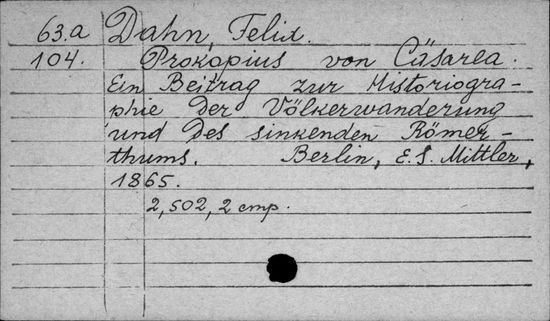 63.a Dahn, Felix.
104. Prokopius von Cäsarea.
Ein Beitrag zur Historiogra-
phie der Völkerwanderung
und des sinkenden Römer-
thums. Berlin, E. S. Mittler,
1865.
2, 502, 2 cmp.